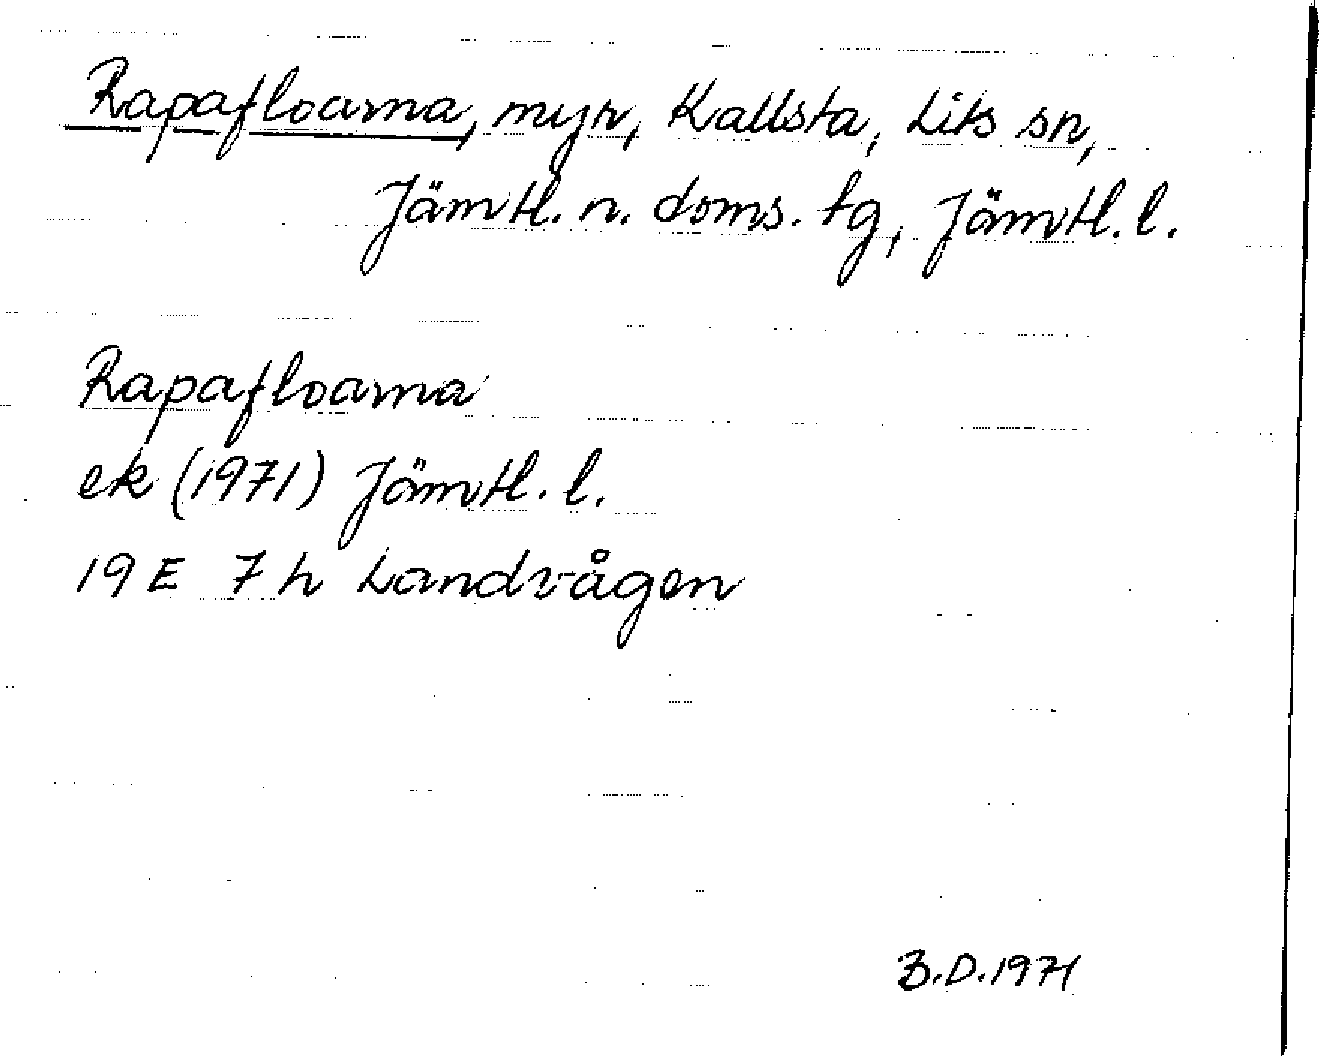 Rapafloarna, myr, Kallsta, Lits sn,
Jämtl. n. doms. tg, Jämtl. l.
Rapafloarna
ek (1971) Jämtl. l.
19 E 7 h Landvågen
B.D. 1971